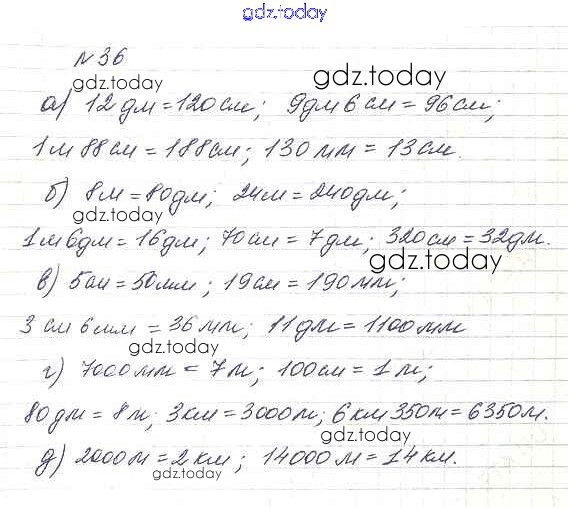 gdz.today
№36
gdz.today gdz.today
а) 12 дм = 120 см; 9 дм 6 см = 96 см;
1 м 88 см = 188 см; 130 мм = 13 см.
б) 8 м = 80 дм; 24 м = 240 дм;
gdz.today
1 м 6 дм = 16 дм; 70 см = 7 дм; 320 см = 32 дм.
gdz.today
в) 5 см = 50 мм; 19 см = 190 мм;
3 см 6 мм = 36 мм; 11 дм = 1100 мм
gdz.today
г) 7000 мм = 7 м; 100 см = 1 м;
80 дм = 8 м; 3 км = 3000 м; 6 км 350 м = 6350 м.
gdz.today
д) 2000 м = 2 км; 14000 м = 14 км.
gdz.today